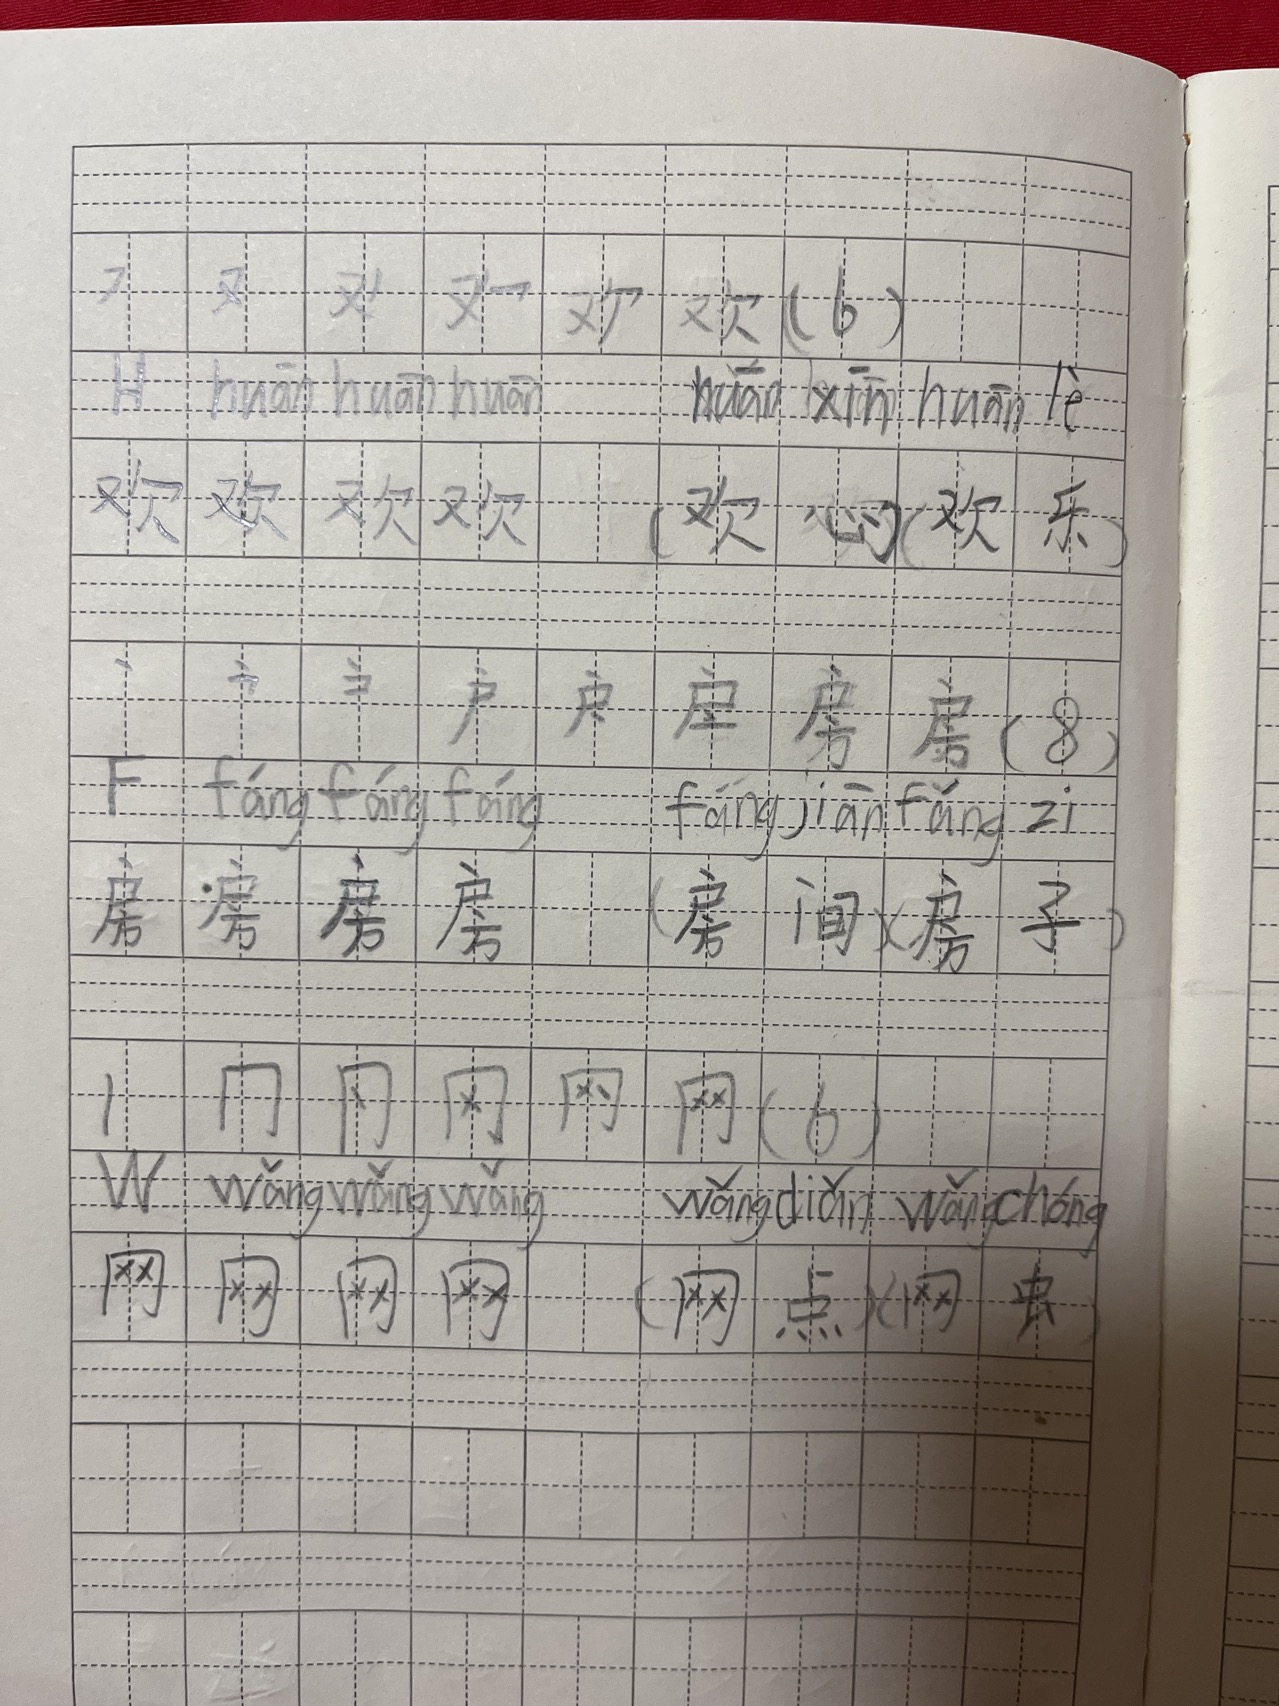 又 欢 欢 (6)
H huān huān huān huān xīn huān lè
欢 欢 欢 欢 (欢 心) (欢 乐)
丶 户 房 房 (8)
F fáng fáng fáng fáng jiān fǎng zi
房 房 房 房 (房 间) (房 子)
丨 冂 网 (6)
W wǎng wǎng wǎng wǎng diǎn wǎng chóng
网 网 网 网 (网 点) (网 虫)